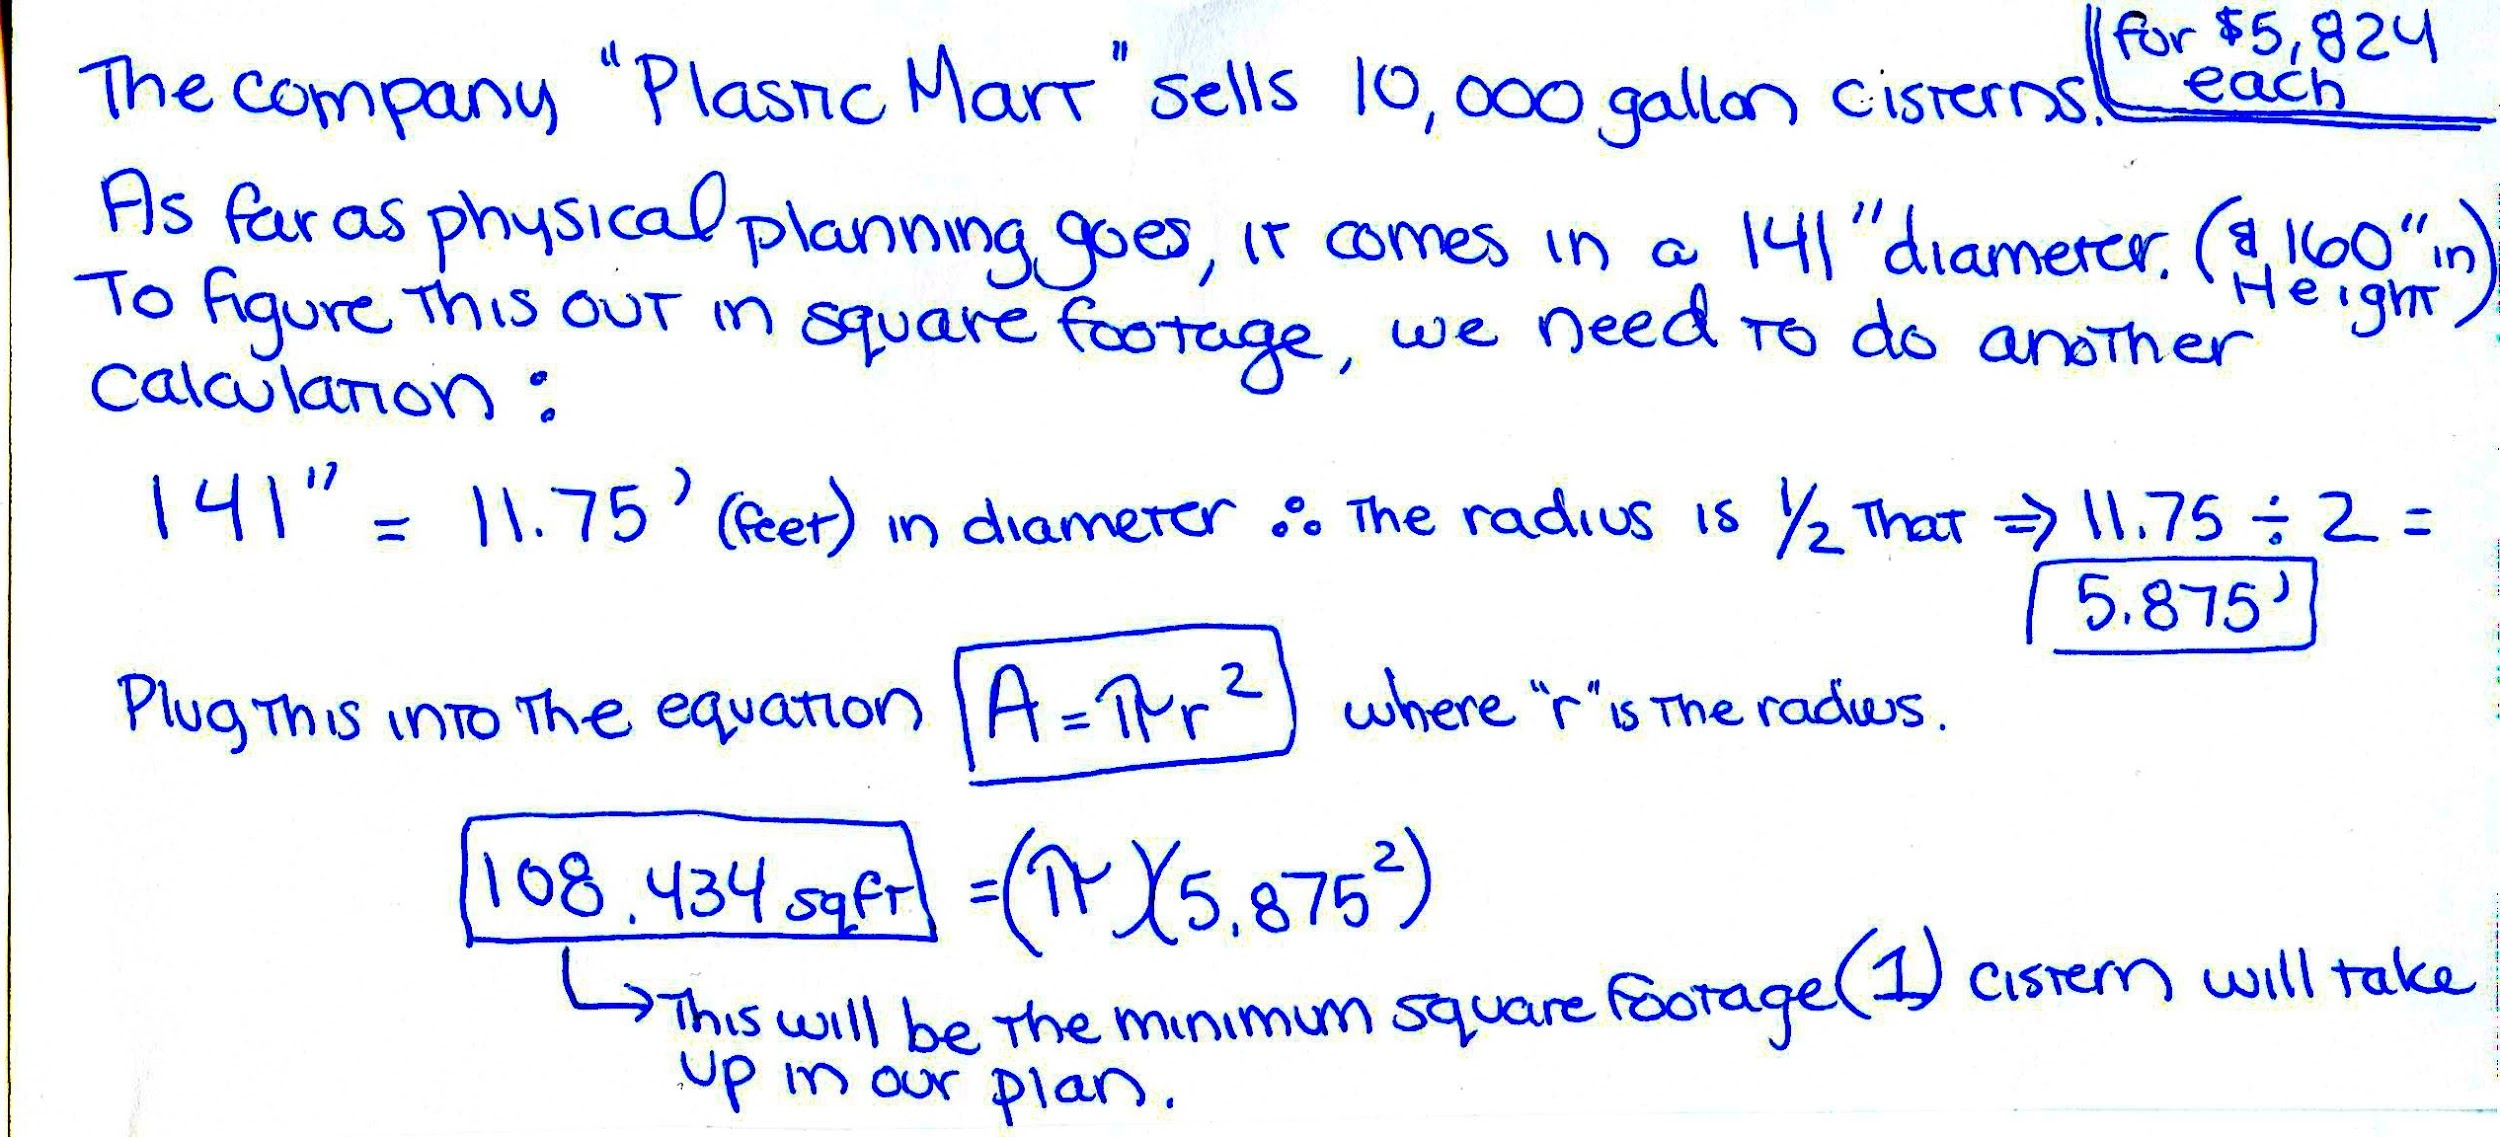 The company "Plastic Mart" sells 10,000 gallon cisterns. for $5,824
each
As far as physical planning goes, it comes in a 141" diameter. (& 160" in
Height)
To figure this out in square footage, we need to do another
calculation:
141" = 11.75' (feet) in diameter ∴ the radius is 1/2 that ⇒ 11.75 ÷ 2 =
5.875'
Plug this into the equation A = πr² where "r" is the radius.
108.434 sqft = (π)(5.875²)
↳ This will be the minimum square footage (1) cistern will take
up in our plan.